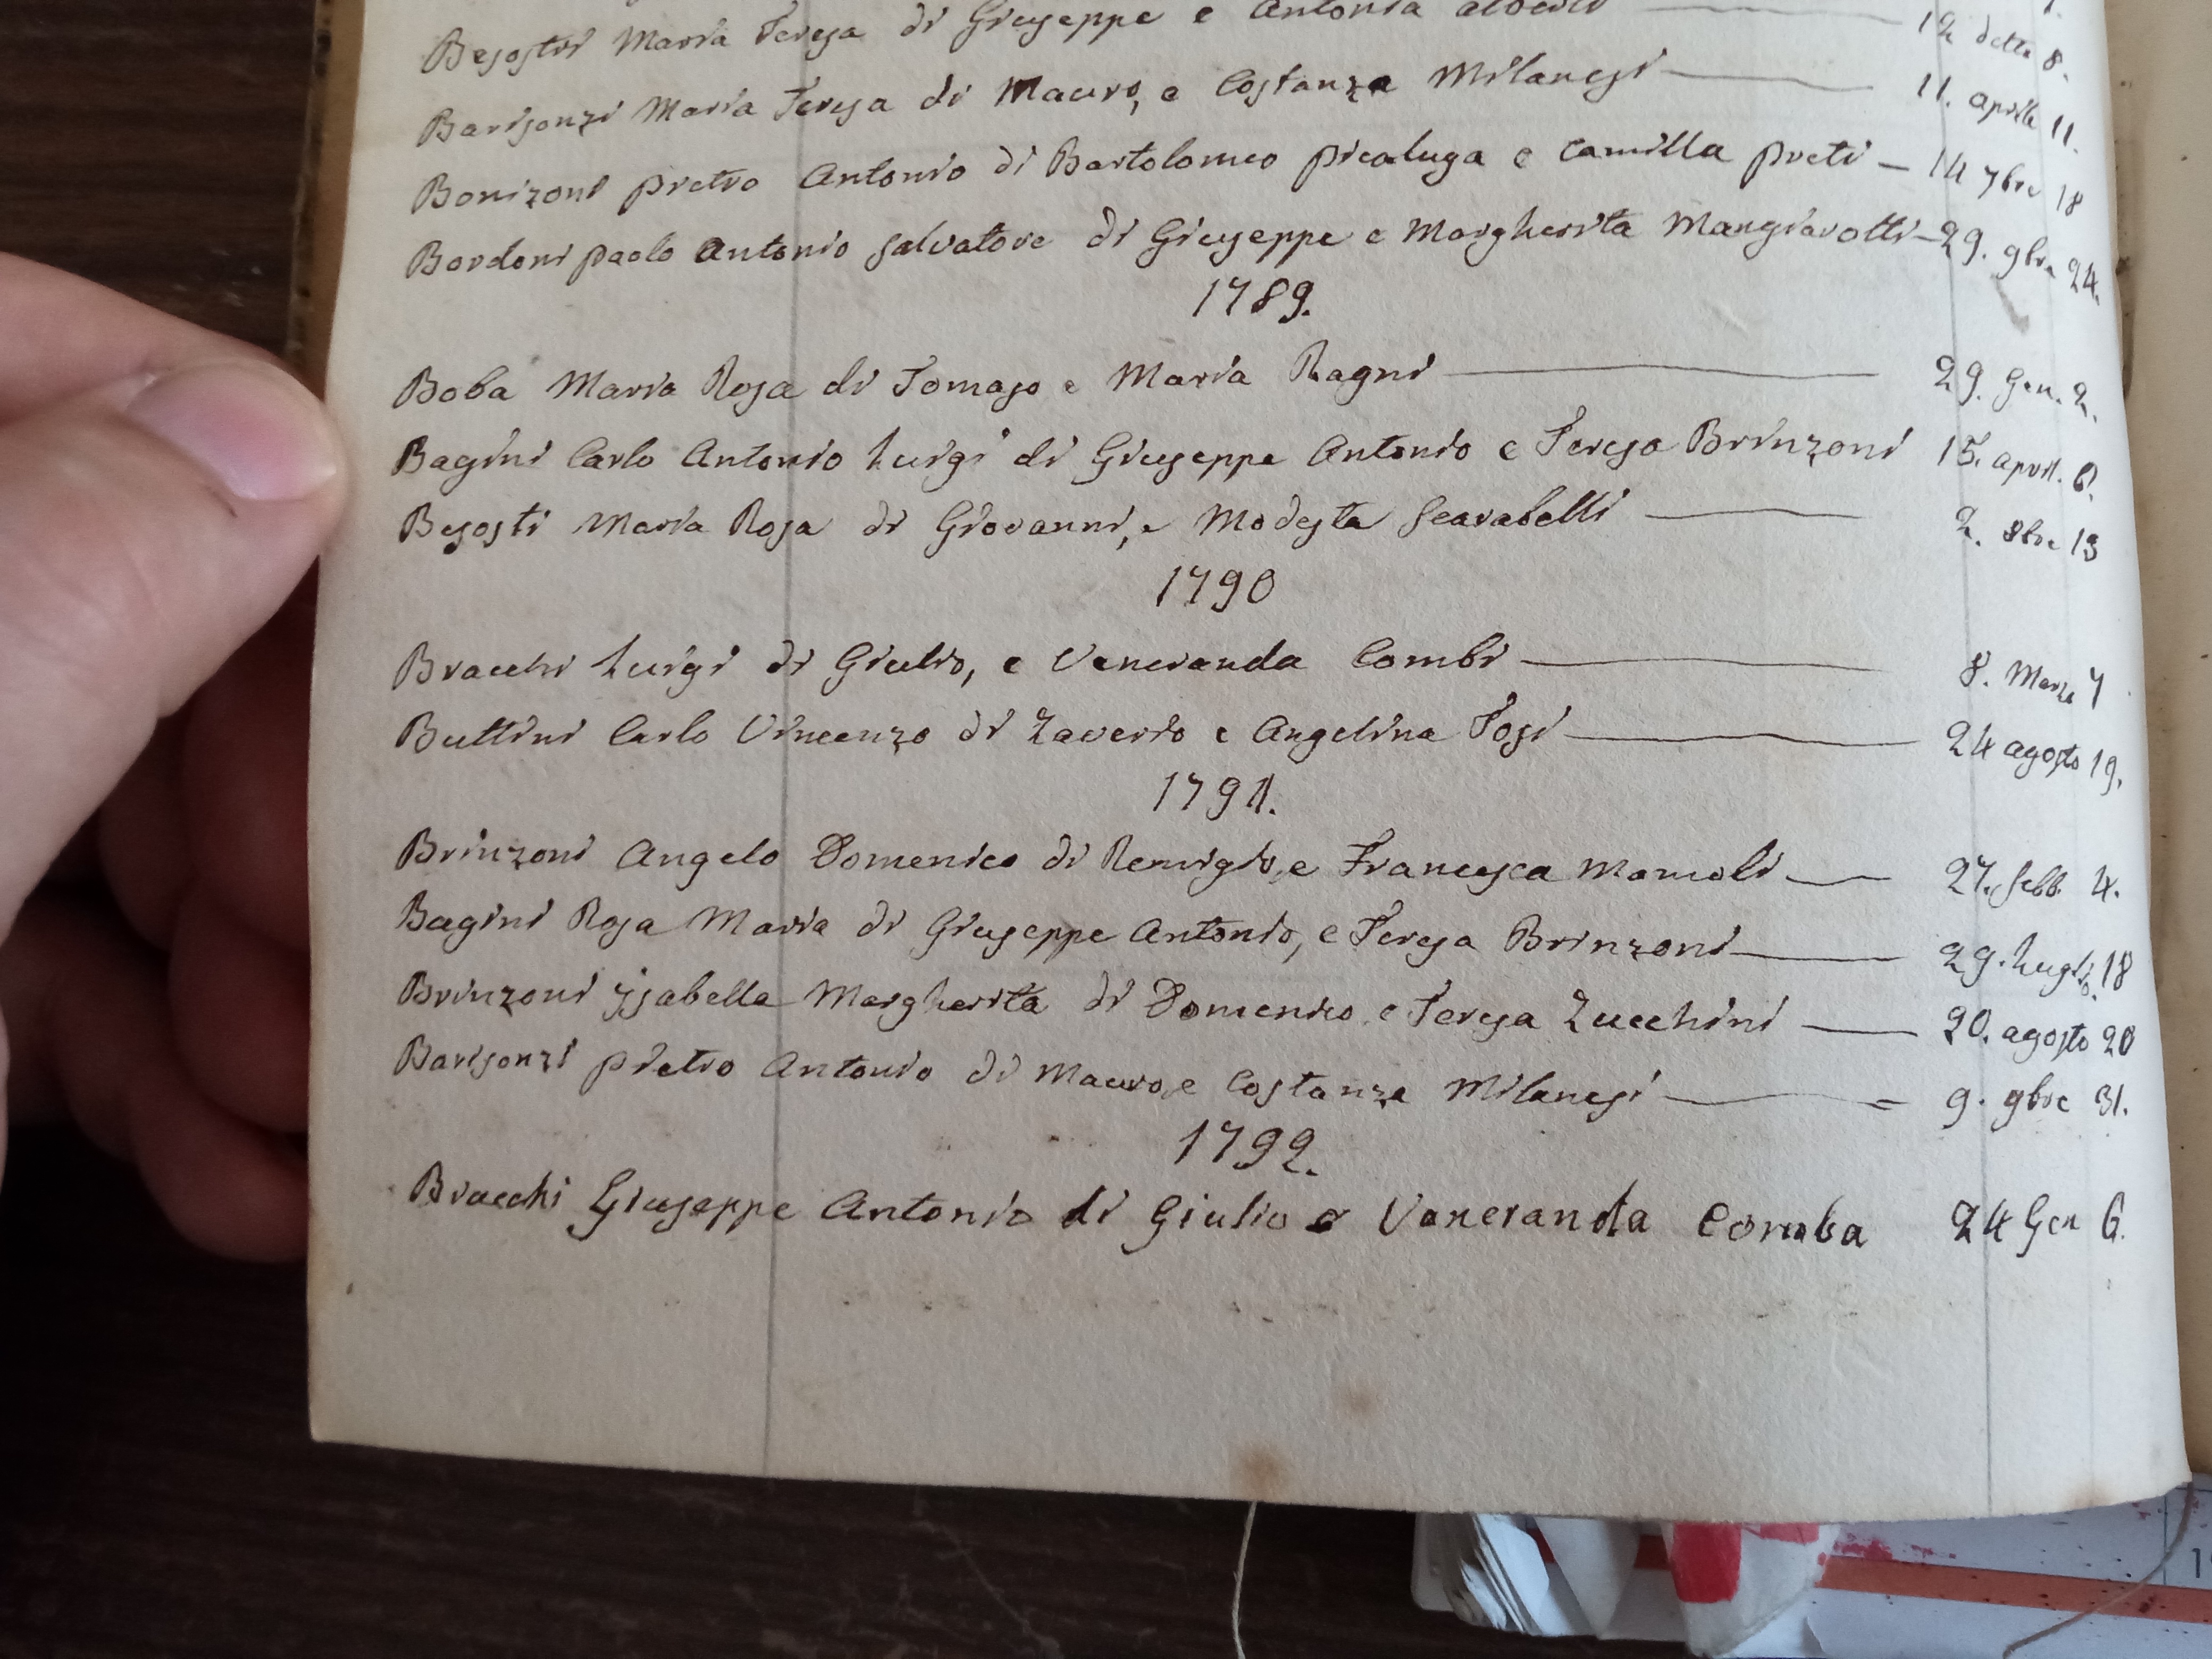 Besostri Maria Teresa di Giuseppe e Antonia 12 detto 8.
Barisonzi Maria Teresa di Mauro, e Costanza Milanesi 11. aprile 11.
Bonizoni pietro Antonio di Bartolomeo picaluga e Camilla preti — 14 7bre 18
Bordoni paolo Antonio Salvatore di Giuseppe e Margherita Mangiarotti — 29. 9bre 24.
1789.
Boba Maria Rosa di Tomaso e Maria Ragni 29. Gen. 2.
Bagini Carlo Antonio Luigi di Giuseppe Antonio e Teresa Brinzoni 15. april. 6.
Besosti Maria Rosa di Giovanni, e Modesta Scarabelli 2. 8bre 13
1790
Bracchi Luigi di Giulio, e Veneranda Combi 8. Marzo 7
Buttini Carlo Vincenzo di Zaverio e Angelina Tosi 24 agosto 19.
1791.
Brinzoni Angelo Domenico di Remigio, e Francesca Momoli 27. febb 4.
Bagini Rosa Maria di Giuseppe Antonio, e Teresa Brinzoni 29. Luglio. 18
Brinzoni Ysabella Margherita di Domenico e Teresa Zucchini 20. agosto 20
Barisonzi pietro Antonio di Mauro, e Costanza Milanesi = 9. 9bre 31.
1792.
Bracchi Giuseppe Antonio di Giulio e Veneranda Comba 24 Gen 6.